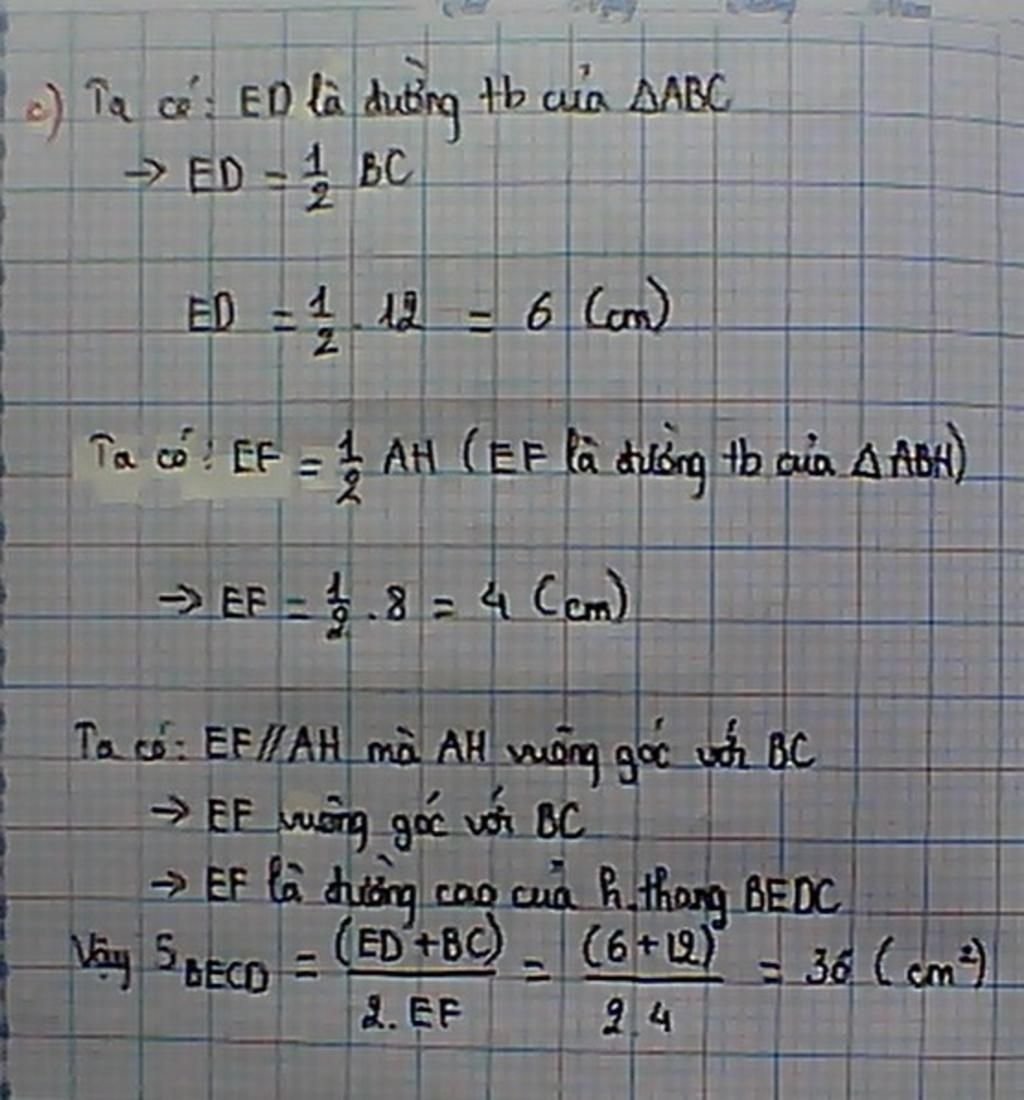 c) Ta có: ED là đường tb của ΔABC
→ ED = 1/2 BC
ED = 1/2 . 12 = 6 (cm)
Ta có: EF = 1/2 AH (EF là đường tb của ΔABH)
→ EF = 1/2 . 8 = 4 (cm)
Ta có: EF // AH mà AH vuông góc với BC
→ EF vuông góc với BC
→ EF là đường cao của h.thang BEDC
Vậy S_BECD = (ED + BC) / 2. EF = (6 + 12) / 2.4 = 36 (cm²)